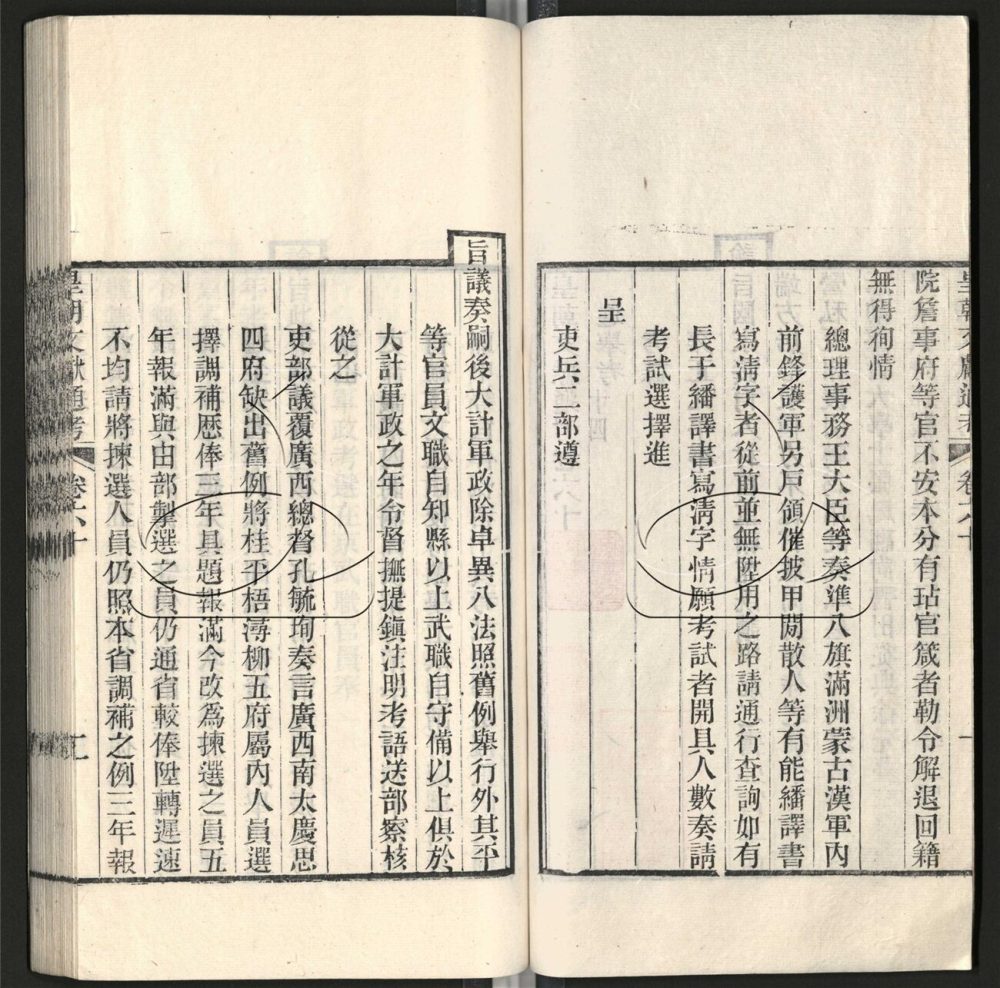 皇朝文獻通考 卷六十
院詹事府等官不安本分有玷官箴者勒令解退回籍
無得徇情
總理事務王大臣等奏準八旗滿洲蒙古漢軍內
前鋒護軍另戶領催披甲閒散人等有能繙譯書
寫淸字者從前並無陞用之路請通行查詢如有
長于繙譯書寫淸字情願考試者開具人數奏請
考試選擇進
呈
吏兵二部遵
旨議奏嗣後大計軍政除卓異八法照舊例舉行外其平
等官員文職自知縣以上武職自守備以上俱於
大計軍政之年令督撫提鎮注明考語送部察核
從之
吏部議覆廣西總督孔毓珣奏言廣西南太慶思
四府缺出舊例將桂平梧潯柳五府屬內人員選
擇調補歷俸三年具題報滿今改爲揀選之員五
年報滿與由部掣選之員仍通省較俸陞轉遲速
不均請將揀選人員仍照本省調補之例三年報
皇朝文獻通考 卷六十